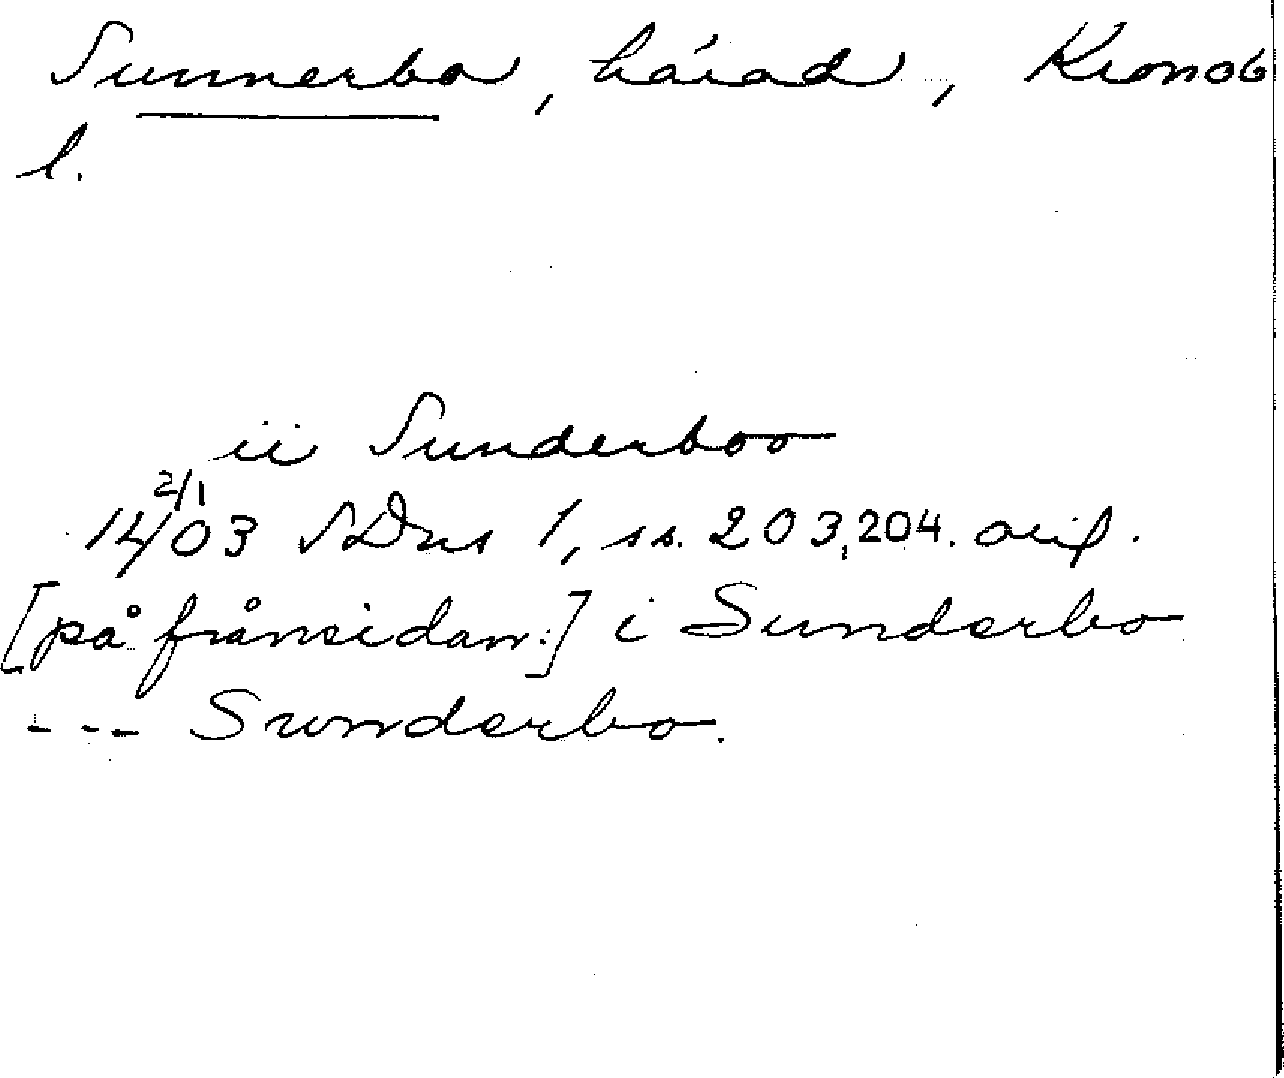 Sunnerbo, härad, Kronob
l.
ii Sunderboo
2/1
1403 SDns 1, ss. 203, 204. orig.
[på frånsidan:] i Sunderbo
--- Sunderbo.